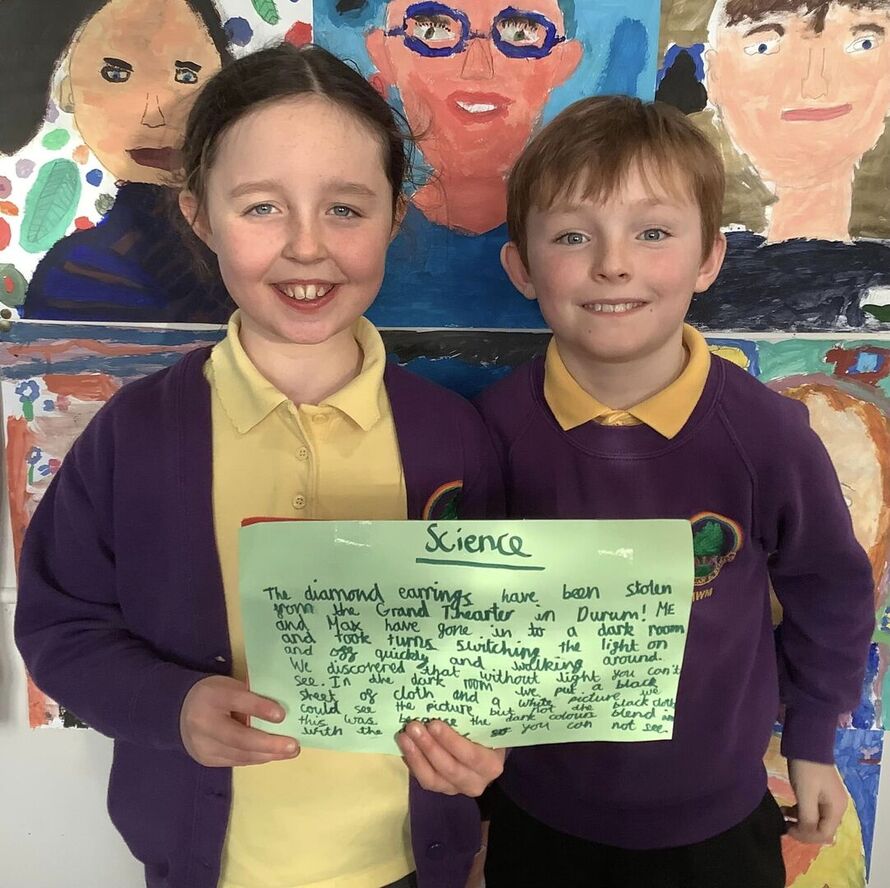 Science
The diamond earrings have been stolen
from the Grand Thearter in Durum! ME
and Max have gone in to a dark room
and took turns switching the light on
and ogg quickly and walking around.
We discovered that without light you can't
see. In the dark room we put a black
sheet of cloth and a white picture we
could see the picture but not the black cloth
this was because the dark colours blend
with the so you can not see.
WM